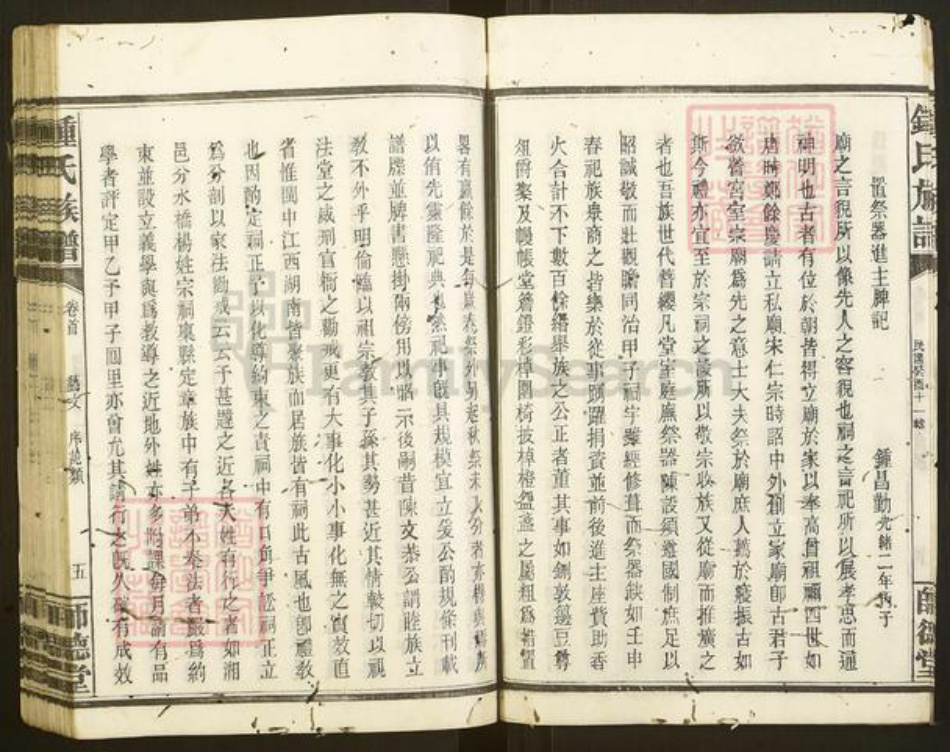 鍾氏族譜
民國癸酉十一
師德堂
置祭器進主牌記
鍾昌勤光緒二年丙子
廟之言貌所以像先人之容貌也祠之言祀所以展孝思而通
神明也古者有位於朝皆得立廟於家以奉高曾祖禰四世如
唐時鄭餘慶請立私廟宋仁宗時詔中外創立家廟卽古君子
欲營宮室宗廟爲先之意士大夫祭於廟庶人薦於寢振古如
斯今禮亦宜至於宗祠之設所以敬宗收族又從廟而推廣之
者也吾族世代簪纓凡堂室庭廡祭器陳設須遵國制庶足以
昭誠敬而壯觀瞻同治甲子祠宇雖經修葺而祭器缺如壬申
春祀族衆商之皆樂於從事踴躍捐資並前後進主座費助香
火合計不下數百餘緡舉族之公正者董其事如鉶敦籩豆尊
俎爵案及幔帳堂簷鐙彩棹圍椅披棹櫈盌盞之屬粗爲措置
畧有贏餘於是每歲春祭外另起秋祭未入分者亦
以侑先靈隆祀典也然祀事旣具規模宜立爰公酌規條刊載
譜牒並牌書懸掛兩傍用以昭示後嗣昔陳文恭公謂睦族立
敎不外乎明倫臨以祖宗敎其子孫其勢甚近其情較切以視
法堂之威刑官衙之勸戒更有大事化小小事化無之實效直
省惟閩中江西湖南皆聚族而居族皆有祠此古風也卽禮敎
也因酌定祠正予以化導約束之責祠中有口角爭訟祠正立
爲分剖以家法勸戒云云予甚韙之近各大姓有行之者如湘
邑分水橋楊姓宗祠稟縣定章族中有子弟不奉法者嚴爲約
束並設立義學與爲敎導之近地外姓亦多附課每月諭有品
學者評定甲乙予甲子回里亦曾允其請行之旣久確有成效
鍾氏族譜
卷首
藝文
序記類
五
師德堂